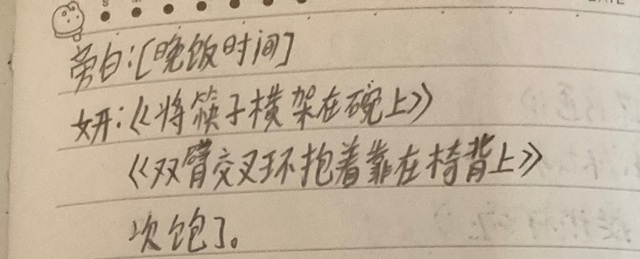 旁白:[晚饭时间]
妍:《将筷子横架在碗上》
《双臂交叉环抱着靠在椅背上》
次饱了。